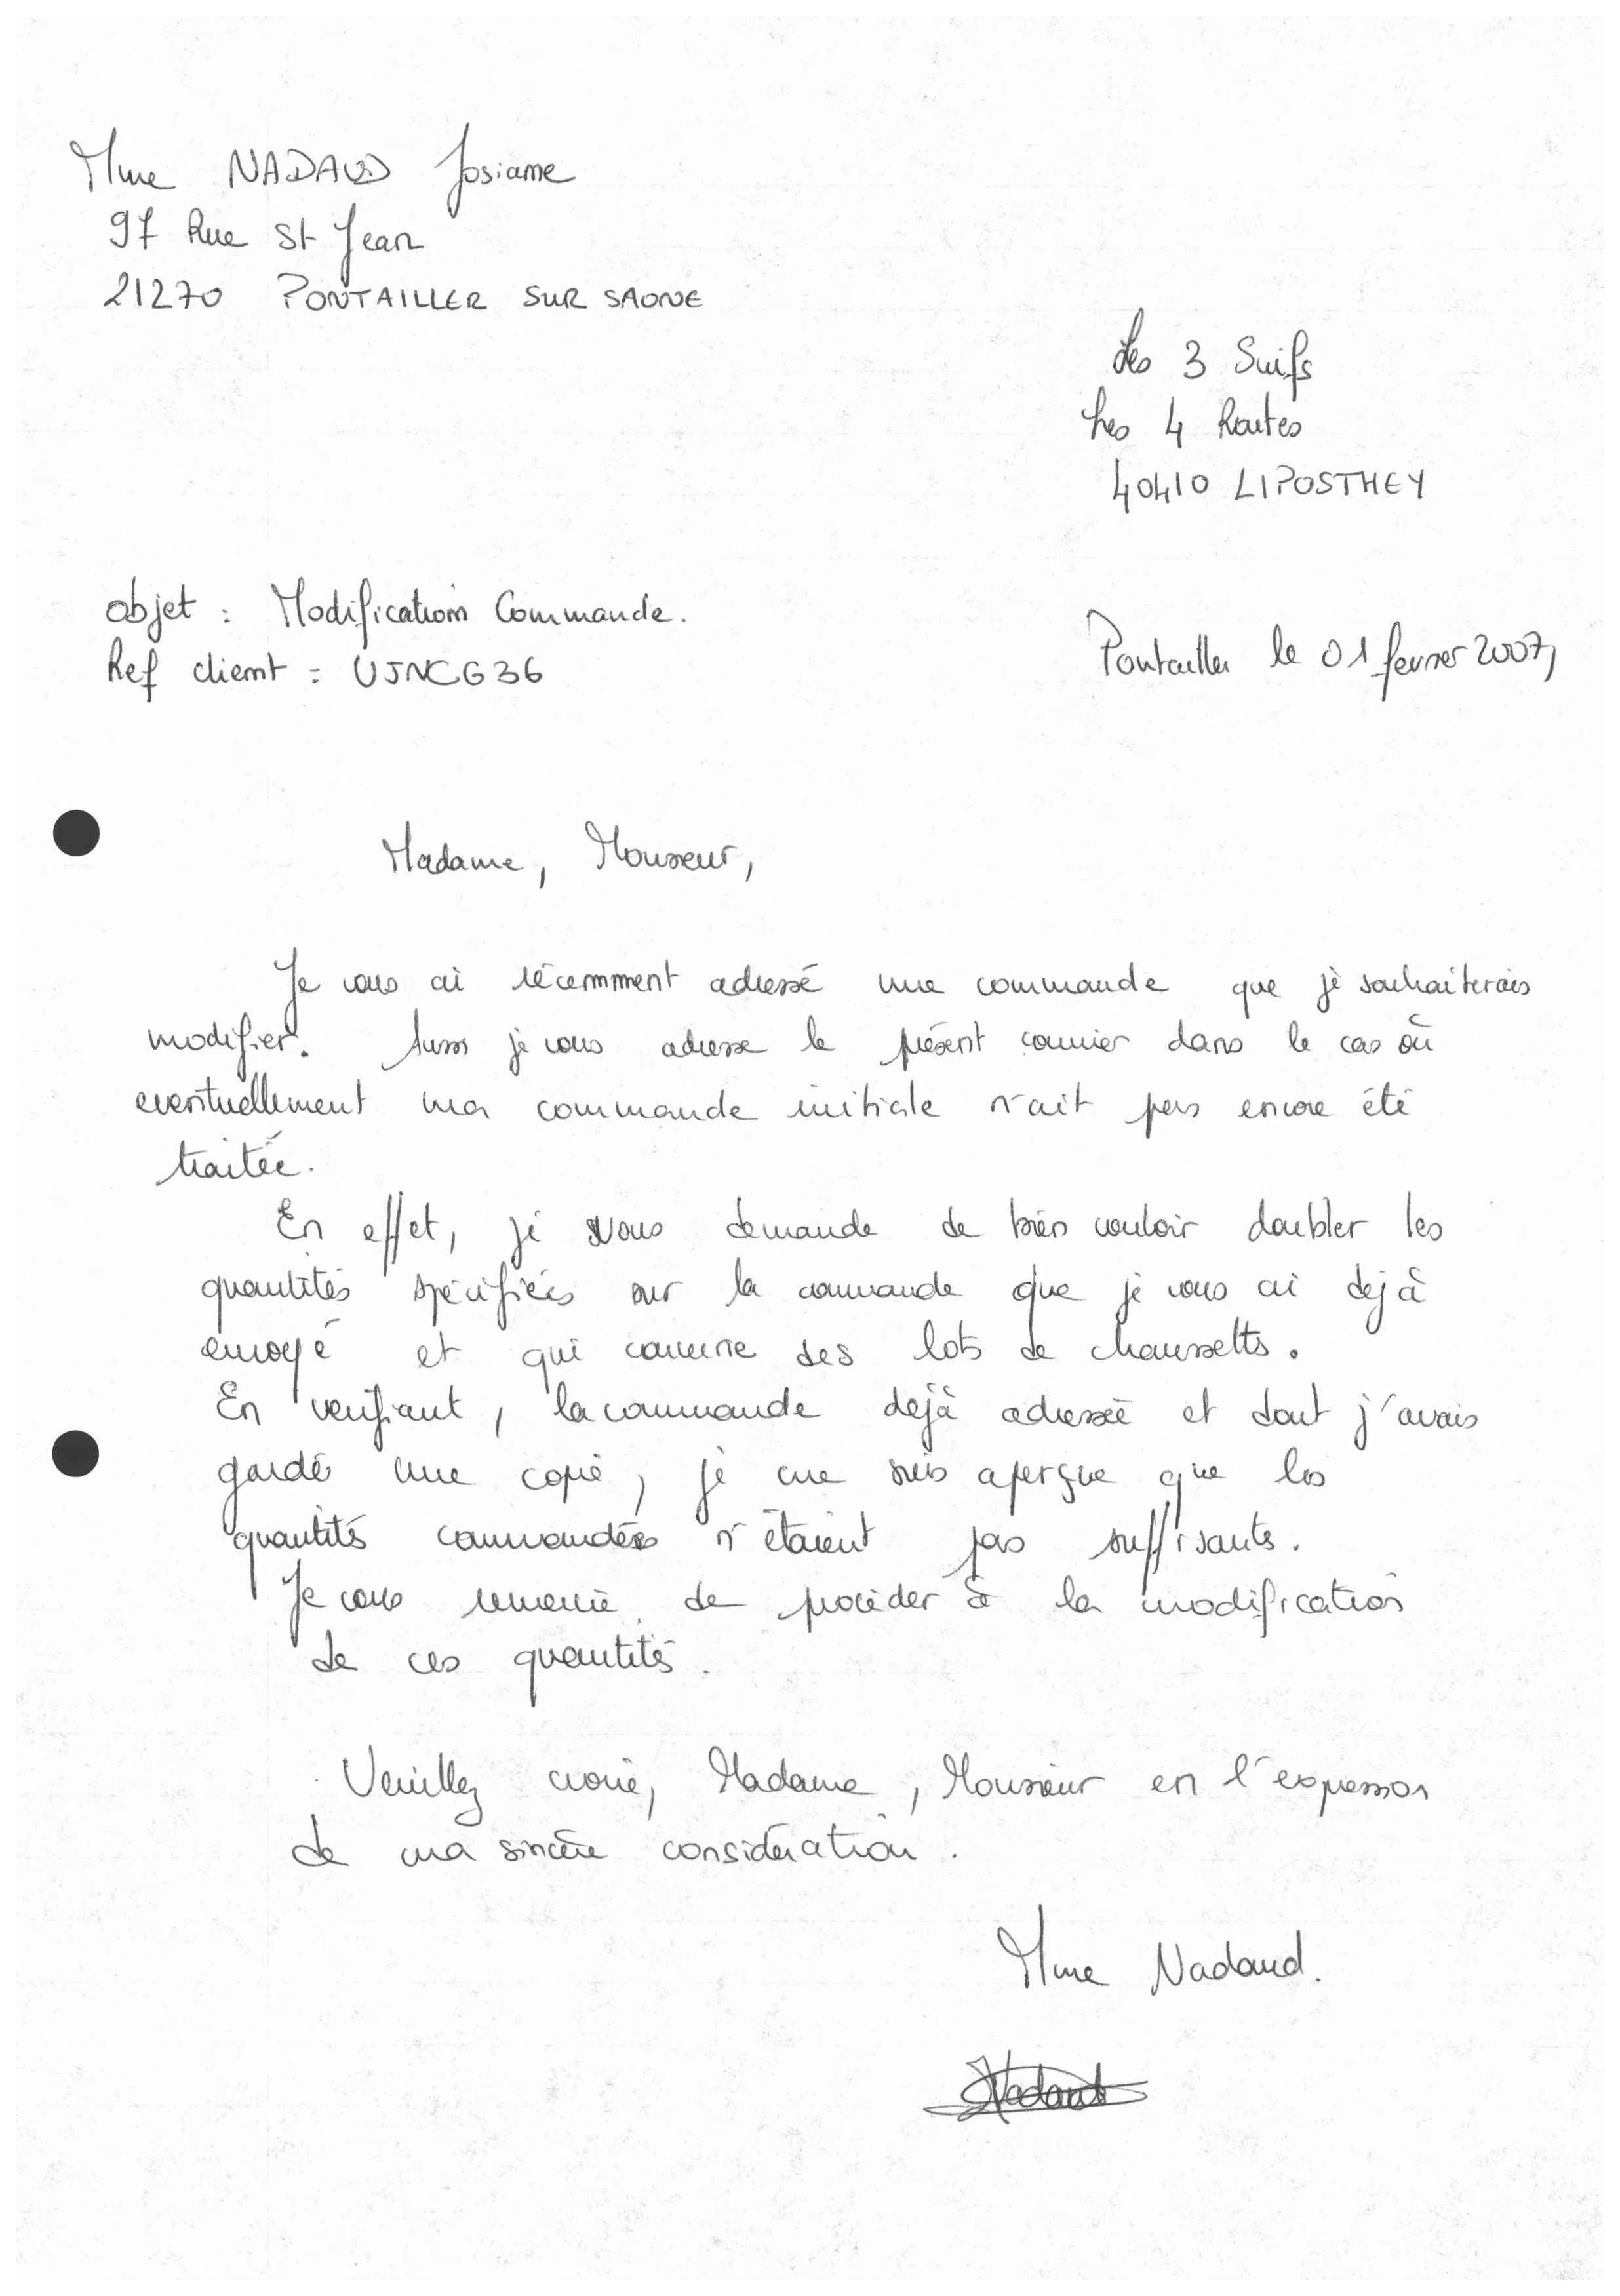 Mme NADAUD Josiane
97 Rue St Jean
21270 PONTAILLER SUR SAONE
Les 3 Suifs
Les 4 Routes
40410 LIPOSTHEY
objet : Modification Commande.
Ref client : UJNCG36
Pontailler le 01 fevrier 2007,
Madame, Monsieur,
Je vous ai récemment adressé une commande que je souhaiterais
modifier. Aussi je vous adresse le présent courrier dans le cas où
eventuellement ma commande initiale n'ait pas encore été
traitée.
En effet, je vous demande de bien vouloir doubler les
quantités spécifiées sur la commande que je vous ai dejà
envoyé et qui concerne des lots de chaussettes.
En verifiant, la commande dejà adressée et dont j'avais
gardé une copie, je me suis aperçue que les
quantités commandées n'étaient pas suffisantes.
Je vous remercie de procéder à la modification
de ces quantités.
Veuillez croire, Madame, Monsieur en l'expression
de ma sincère considération.
Mme Nadaud.
Nadaud